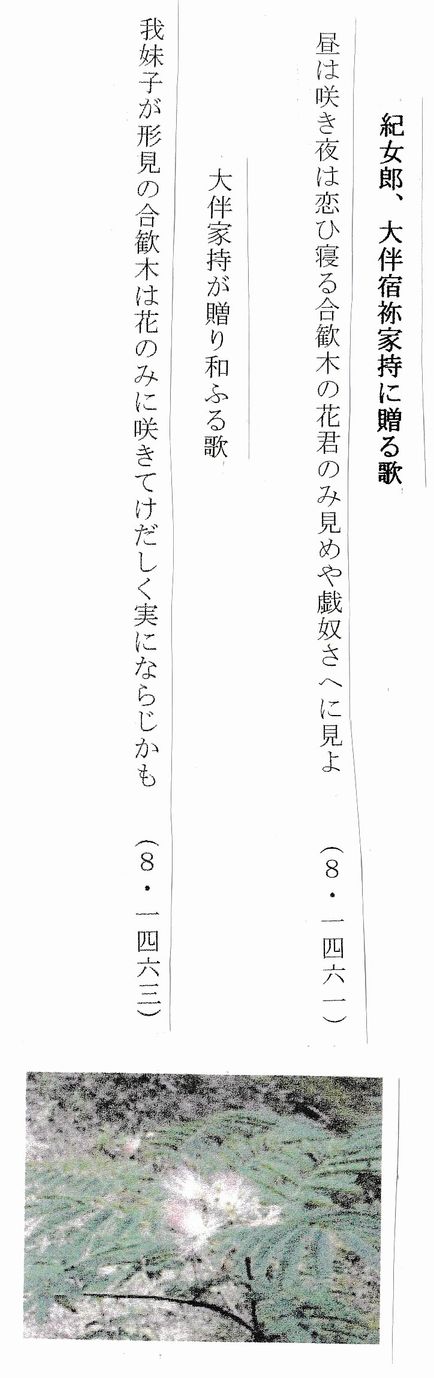 紀女郎、大伴宿祢家持に贈る歌
昼は咲き夜は恋ひ寝る合歓木の花君のみ見めや戯奴さへに見よ （８・一四六一）
大伴家持が贈り和ふる歌
我妹子が形見の合歓木は花のみに咲きてけだしく実にならじかも （８・一四六三）